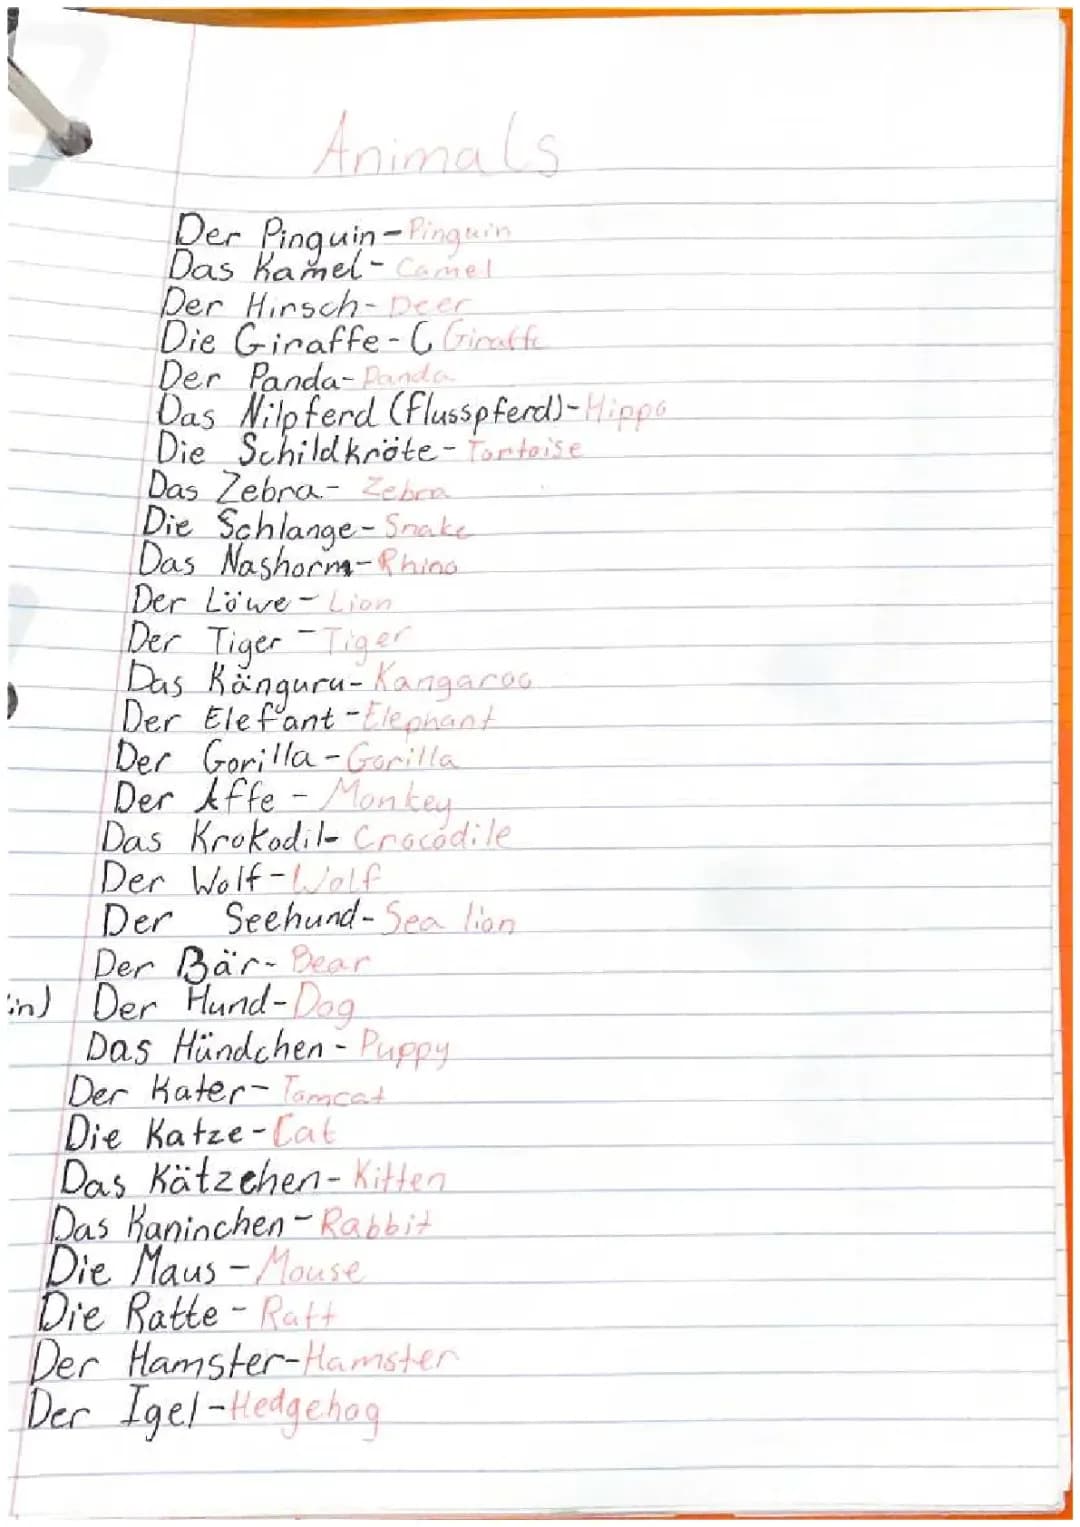 Animals
Der Pinguin - Pinguin
Das Kamel - Camel
Der Hirsch - Deer
Die Giraffe - G Giraffe
Der Panda - Panda
Das Nilpferd (Flusspferd) - Hippo
Die Schildkröte - Tortoise
Das Zebra - Zebra
Die Schlange - Snake
Das Nashorn - Rhino
Der Löwe - Lion
Der Tiger - Tiger
Das Känguru - Kangaroo
Der Elefant - Elephant
Der Gorilla - Gorilla
Der Affe - Monkey
Das Krokodil - Crocodile
Der Wolf - Wolf
Der Seehund - Sea lion
Der Bär - Bear
in) Der Hund - Dog
Das Hündchen - Puppy
Der Kater - Tomcat
Die Katze - Cat
Das Kätzchen - Kitten
Das Kaninchen - Rabbit
Die Maus - Mouse
Die Ratte - Ratt
Der Hamster - Hamster
Der Igel - Hedgehog